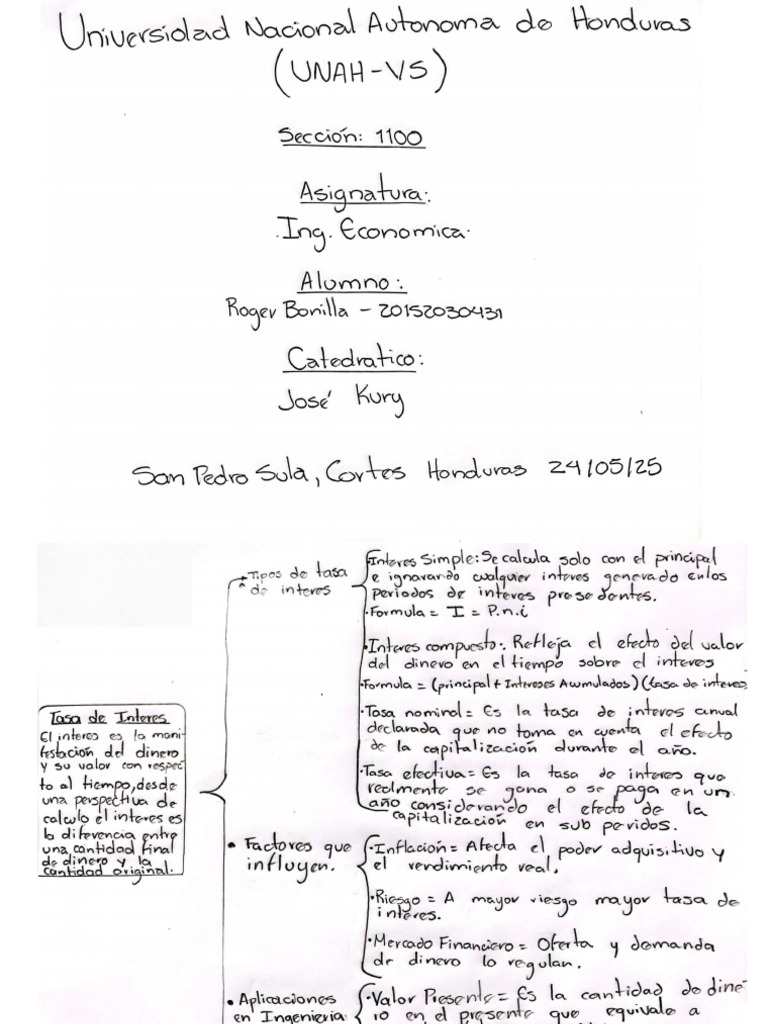 Universidad Nacional Autonoma de Honduras
(UNAH-VS)
Sección: 1100
Asignatura:
Ing. Economica
Alumno:
Roger Bonilla - 20152030431
Catedratico:
José Kury
San Pedro Sula, Cortes Honduras 24/05/25
Tasa de Interes
El interes es la mani-
festación del dinero
y su valor con respec
to al tiempo, desde
una perspectiva de
calculo el interes es
la diferencia entre
una cantidad final
de dinero y la
cantidad original.
• Tipos de tasa
de interes
• Interes Simple: Se calcula solo con el principal
e ignorando cualquier interes generado en los
periodos de interes presedentes.
• Formula = I = P.n.i
• Interes compuesto: Refleja el efecto del valor
del dinero en el tiempo sobre el interes
• Formula = (principal + Intereses Acumulados) (tasa de interes
• Tasa nominal = Es la tasa de interes anual
declarada que no toma en cuenta el efecto
de la capitalización durante el año.
• Tasa efectiva = Es la tasa de interes que
realmente se gana o se paga en un
año considerando el efecto de la
capitalización en sub periodos.
• Factores que
influyen.
• Inflación = Afecta el poder adquisitivo y
el rendimiento real.
• Riesgo = A mayor riesgo mayor tasa de
interes.
• Mercado Financiero = Oferta y demanda
de dinero lo regulan.
• Aplicaciones
en Ingenieria
• Valor Presente = Es la cantidad de dine
ro en el presente que equivale a